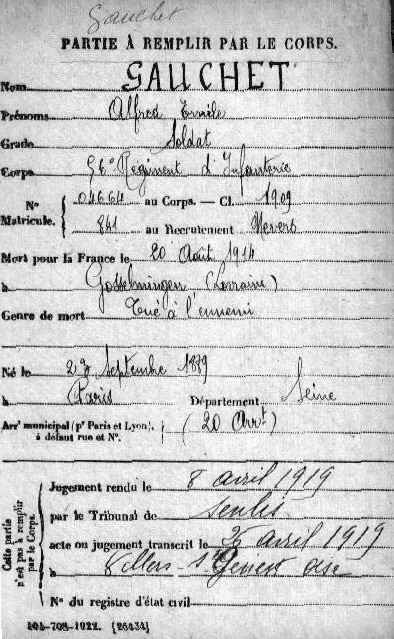 Gauchet
PARTIE À REMPLIR PAR LE CORPS.
Nom GAUCHET
Prénoms Alfred Emile
Grade Soldat
Corps 56e Régiment d'Infanterie
N° Matricule. 04664 au Corps. — Cl. 1909
841 au Recrutement Nevers
Mort pour la France le 20 Août 1914
à Gosselmingen (Lorraine)
Genre de mort Tué à l'ennemi
Né le Septembre 1889
à Paris Département Seine
Arrt municipal (pr Paris et Lyon), à défaut rue et N°. (20 Arrt)
Cette partie n'est pas à remplir par le Corps.
Jugement rendu le 8 avril 1919
par le Tribunal de Senlis
acte ou jugement transcrit le 25 avril 1919
à Villers St Genest Oise
N° du registre d'état civil
101-708-1922. [26434]